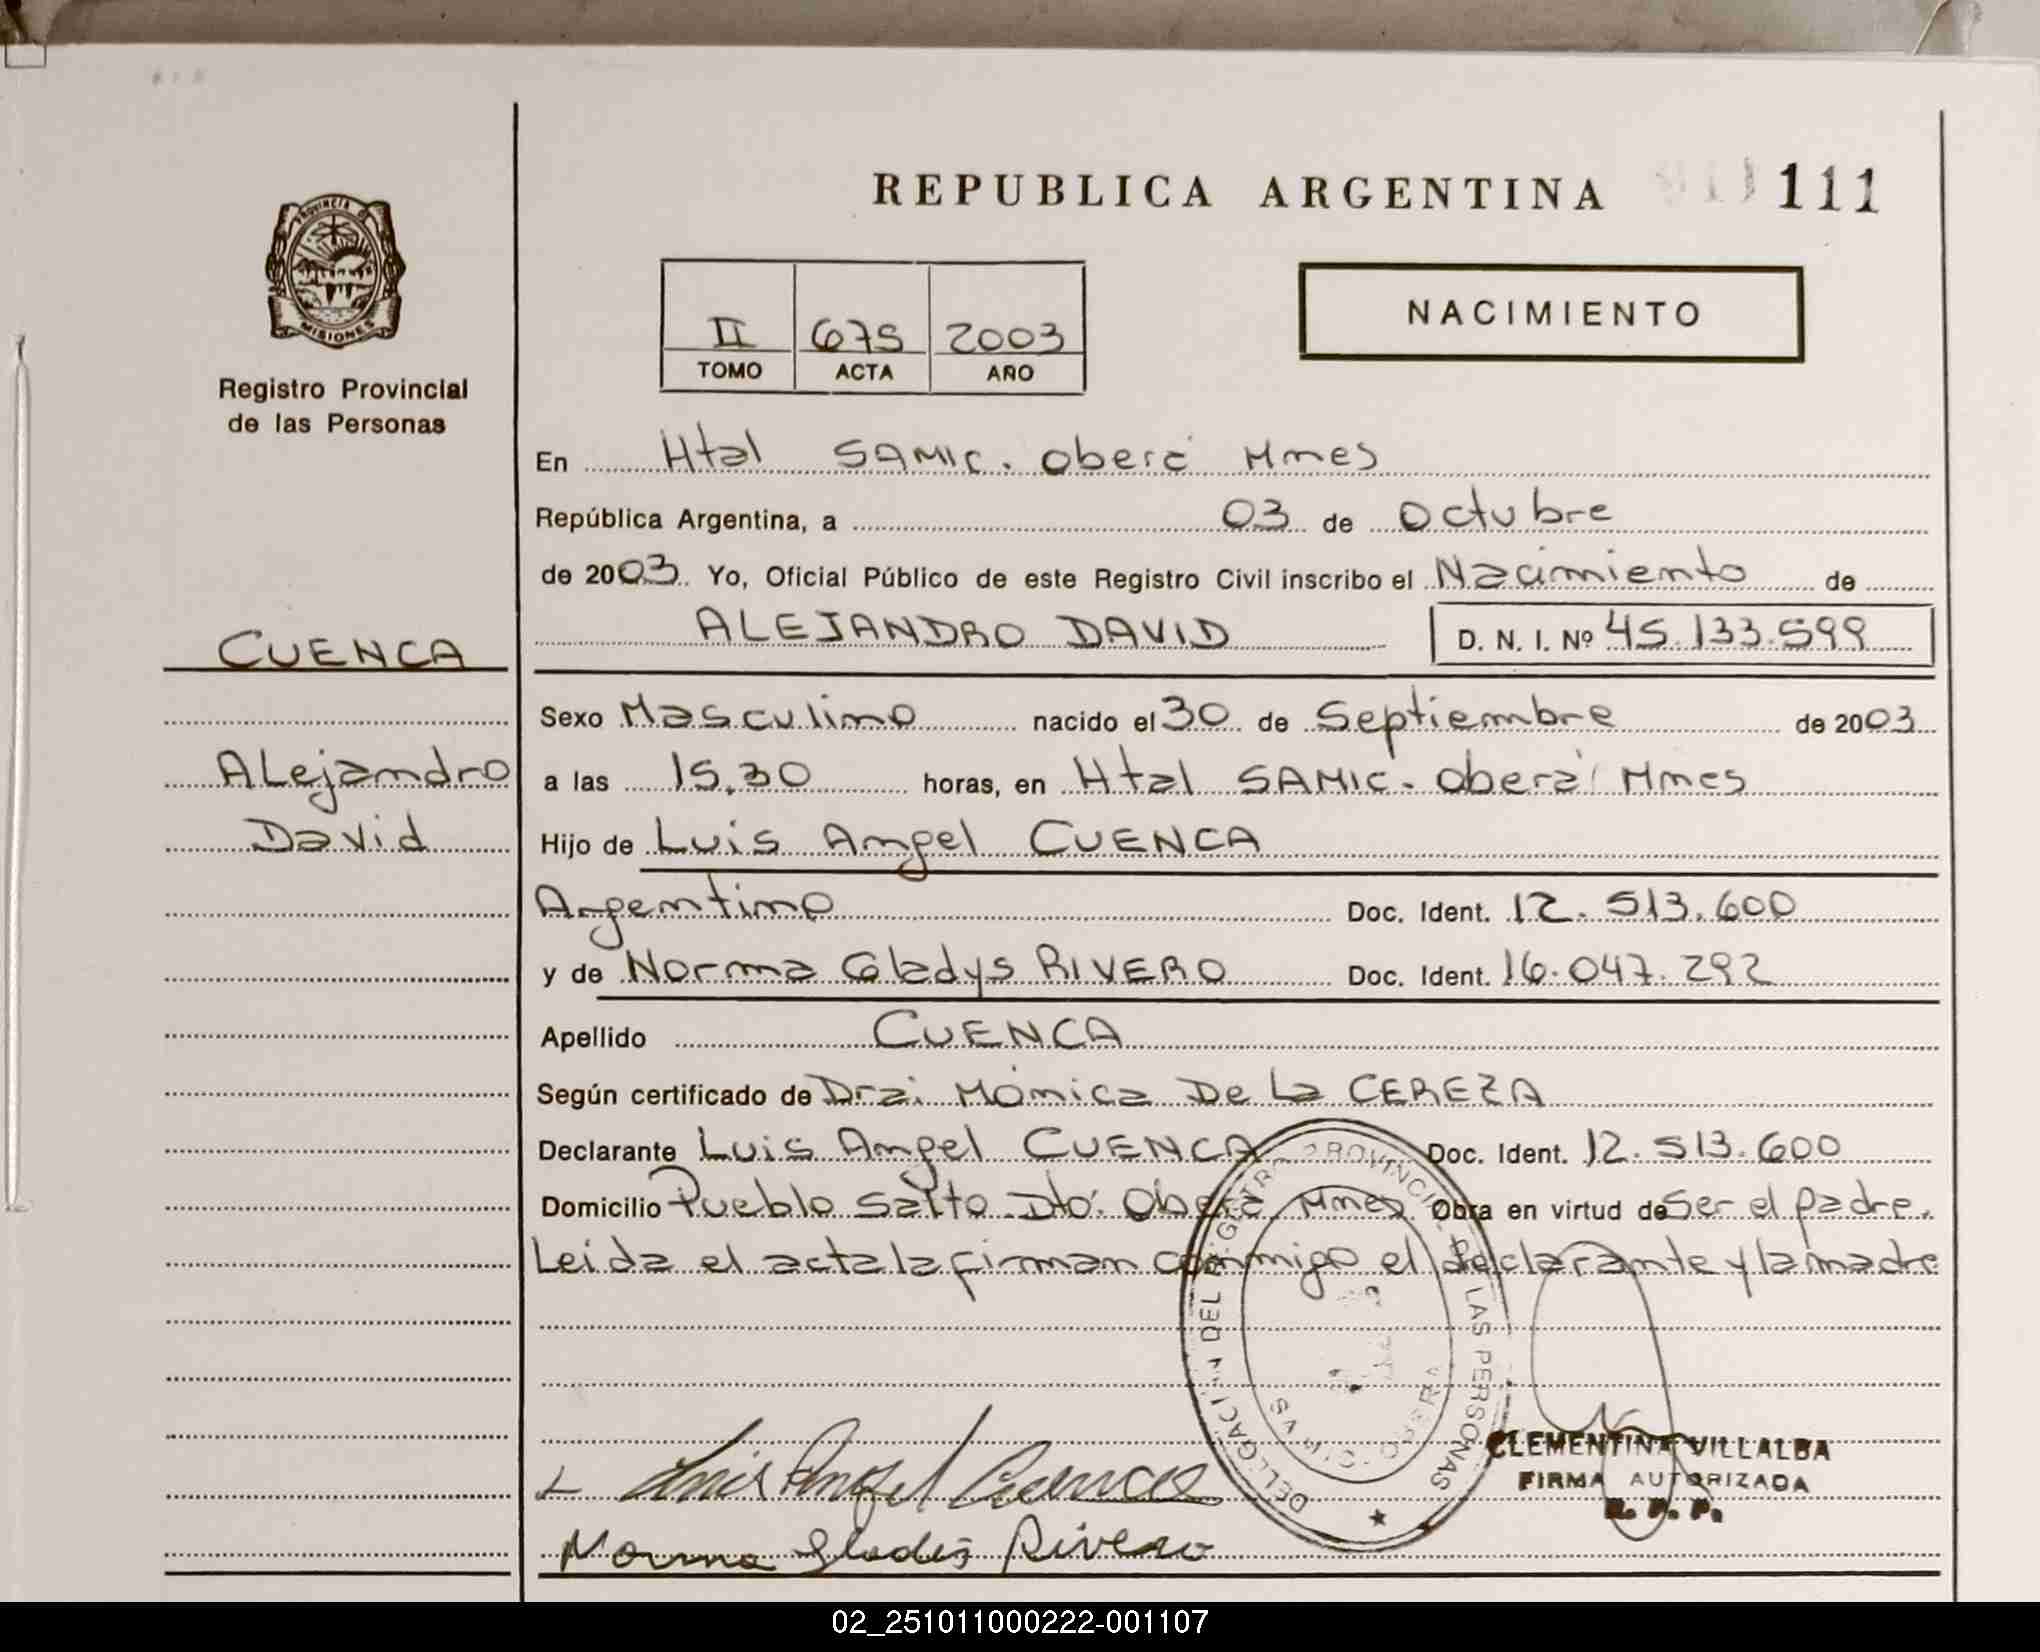 REPUBLICA ARGENTINA 111
PROVINCIA DE
MISIONES
Registro Provincial
de las Personas
NACIMIENTO
II 675 2003
TOMO ACTA AÑO
En Htal SAMIC. Oberá Mnes
República Argentina, a 03 de Octubre
de 2003. Yo, Oficial Público de este Registro Civil inscribo el Nacimiento de
CUENCA
ALEJANDRO DAVID D. N. I. Nº 45.133.599
Sexo Masculino nacido el 30 de Septiembre de 2003
Alejandro
David
a las 15,30 horas, en Htal SAMIC. Oberá Mnes
Hijo de Luis Angel CUENCA
Argentino Doc. Ident. 12.513.600
y de Norma Gladys RIVERO Doc. Ident. 16.047.292
Apellido CUENCA
Según certificado de Dra. Mónica De La CEREZA
Declarante Luis Angel CUENCA Doc. Ident. 12.513.600
Domicilio Pueblo Salto Dto. Oberá Mnes Obra en virtud de Ser el padre.
Leida el acta la firman conmigo el declarante y la madre
DEL REGISTRO PROVINCIAL DE LAS PERSONAS
CLEMENTINA VILLALBA
FIRMA AUTORIZADA
R. P. P.
Luis Angel Cuenca
Norma Gladis Rivero
02_251011000222-001107